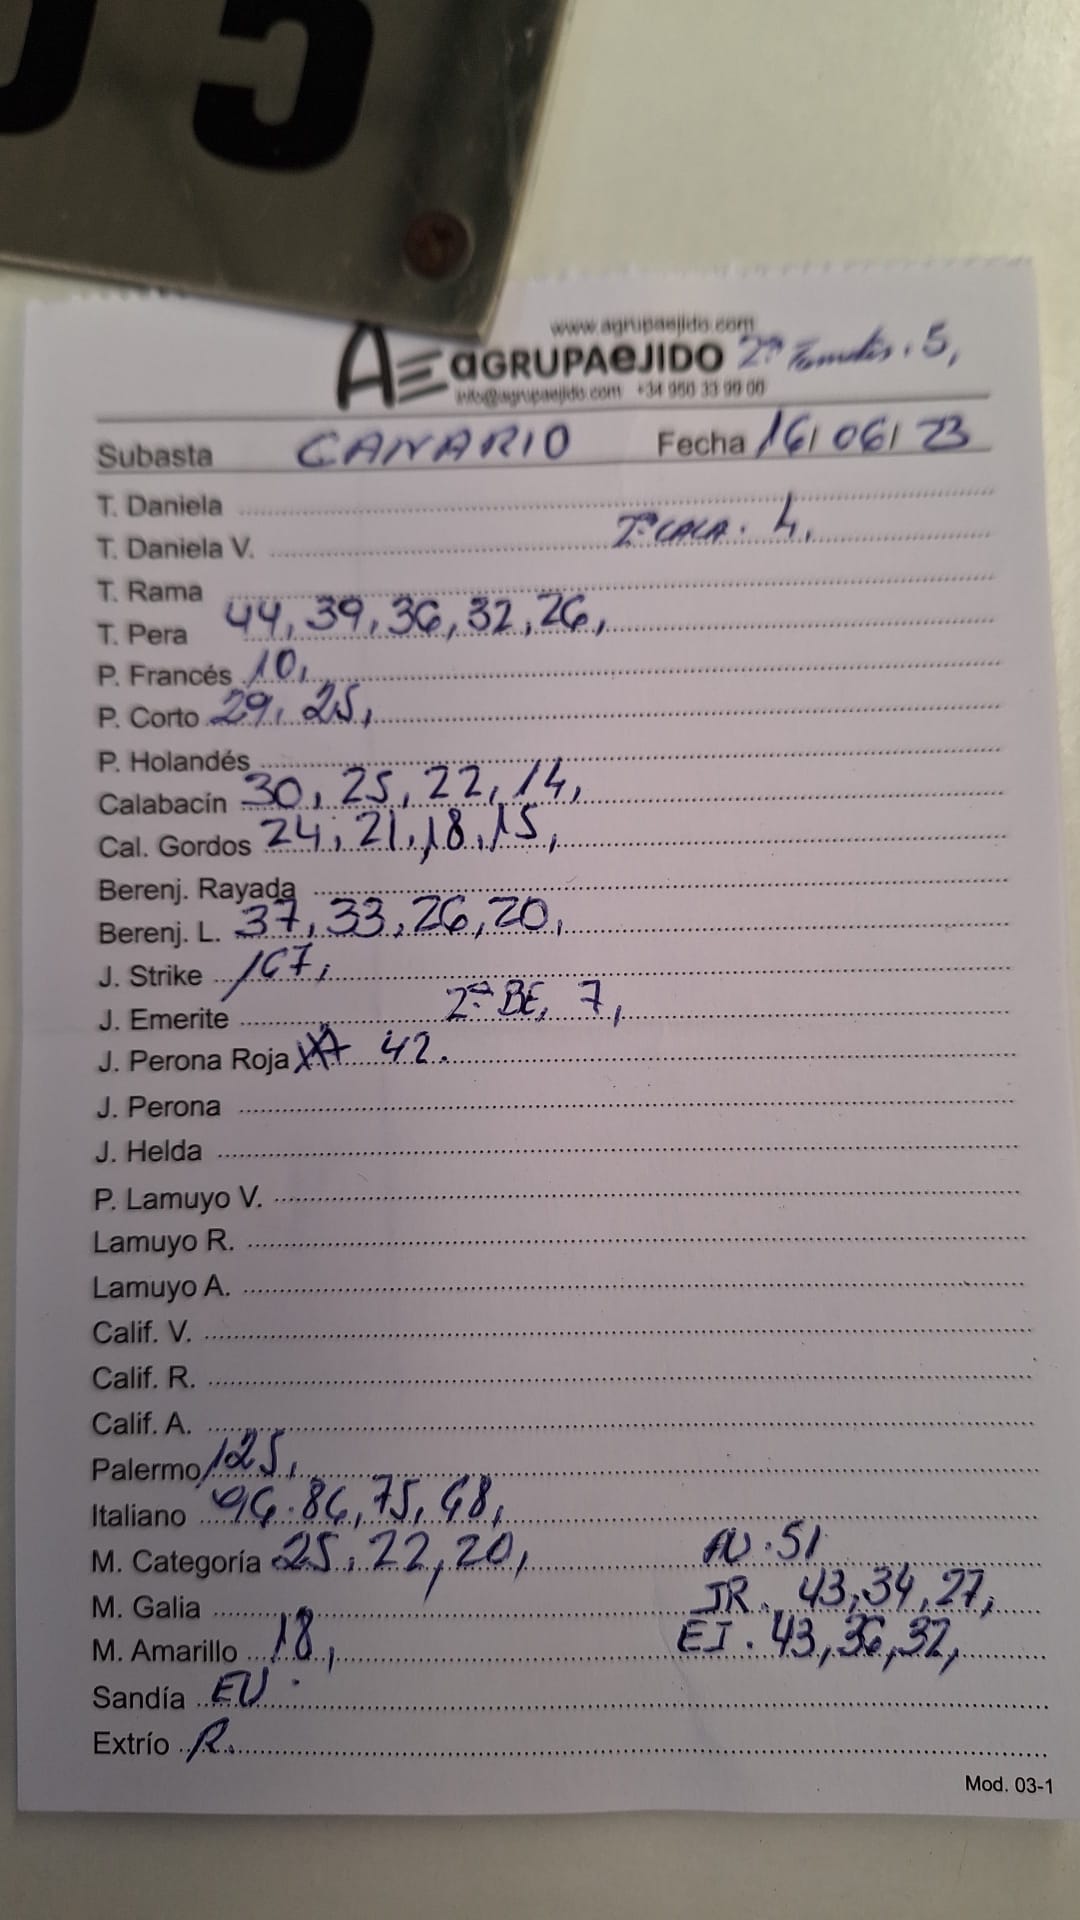 05
www.agrupaejido.com
AE aGRUPAeJIDO 2ª Tomates. 5,
info@agrupaejido.com +34 950 33 99 00
Subasta CANARIO Fecha 16/06/23
T. Daniela
T. Daniela V. 2ª CALA. 4,
T. Rama
T. Pera 44, 39, 36, 32, 26,
P. Francés 10,
P. Corto 29, 25,
P. Holandés
Calabacín 30, 25, 22, 14,
Cal. Gordos 24, 21, 18, 15,
Berenj. Rayada
Berenj. L. 37, 33, 26, 20,
J. Strike 167,
J. Emerite 2ª BE, 7,
J. Perona Roja 42.
J. Perona
J. Helda
P. Lamuyo V.
Lamuyo R.
Lamuyo A.
Calif. V.
Calif. R.
Calif. A.
Palermo 125,
Italiano 96. 86, 75, 68,
M. Categoría 25, 22, 20, AU. 51
M. Galia JR. 43, 34, 27,
M. Amarillo 18, EI. 43, 36, 32,
Sandía EU
Extrío R.
Mod. 03-1